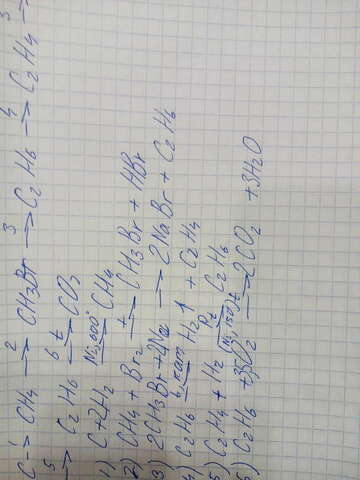 C →¹ CH4 →² CH3Br →³ C2H6 →⁴ C2H4 →⁵
→⁵ C2H6 →⁶ t CO3
1) C+2H2 → Ni, 600° CH4
2) CH4 + Br2 → t CH3Br + HBr
3) 2CH3Br + 2Na → 2NaBr + C2H6
4) C2H6 → t, кат H2↑ + C2H4
5) C2H4 + H2 → C2H6
6) C2H6 + 3,5O2 → 2CO2 + 3H2O